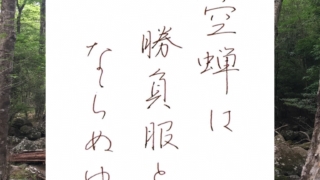 空蝉は
勝負服と
ならぬゆ